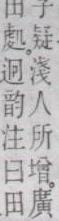 子疑淺人所增廣
田處迥韵注曰田